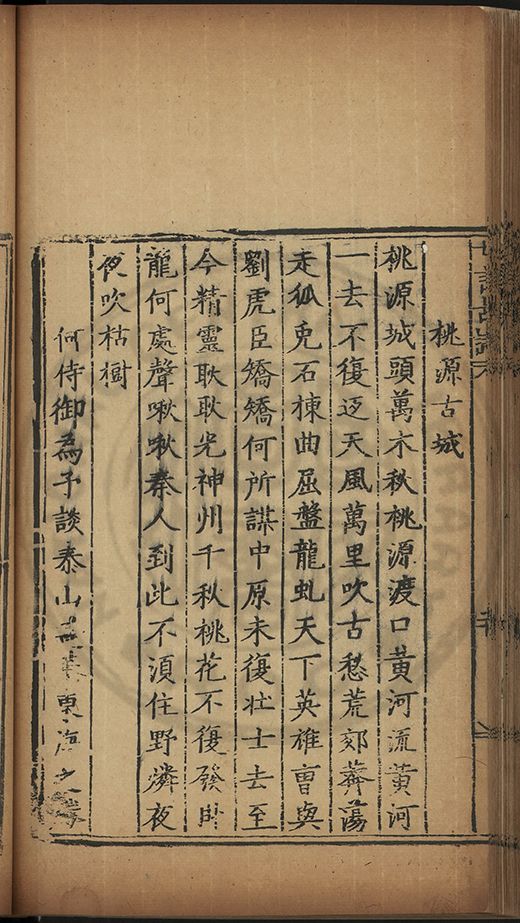 桃源古城
桃源城頭萬木秋桃源渡口黄河流黄河
一去不復迈天風萬里吹古愁荒郊莽蕩
走狐兎石棟曲屈盤龍虬天下英雄曹與
劉虎臣矯矯何所謀中原未復壮士去至
今精靈耿耿光神州千秋桃花不復發卧
龍何處聲啾啾秦人到此不湏住野燐夜
夜吹枯樹
何侍御為予談泰山東海之